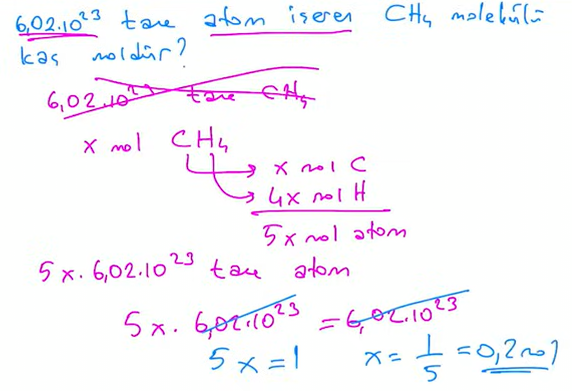 6,02.10²³ tane atom içeren CH₄ molekülü
kaç moldür?
6,02.10²³ tane CH₄
x mol CH₄
x mol C
4x mol H
5x mol atom
5x. 6,02.10²³ tane atom
5x. 6,02.10²³ = 6,02.10²³
5x = 1 x = 1/5 = 0,2 mol